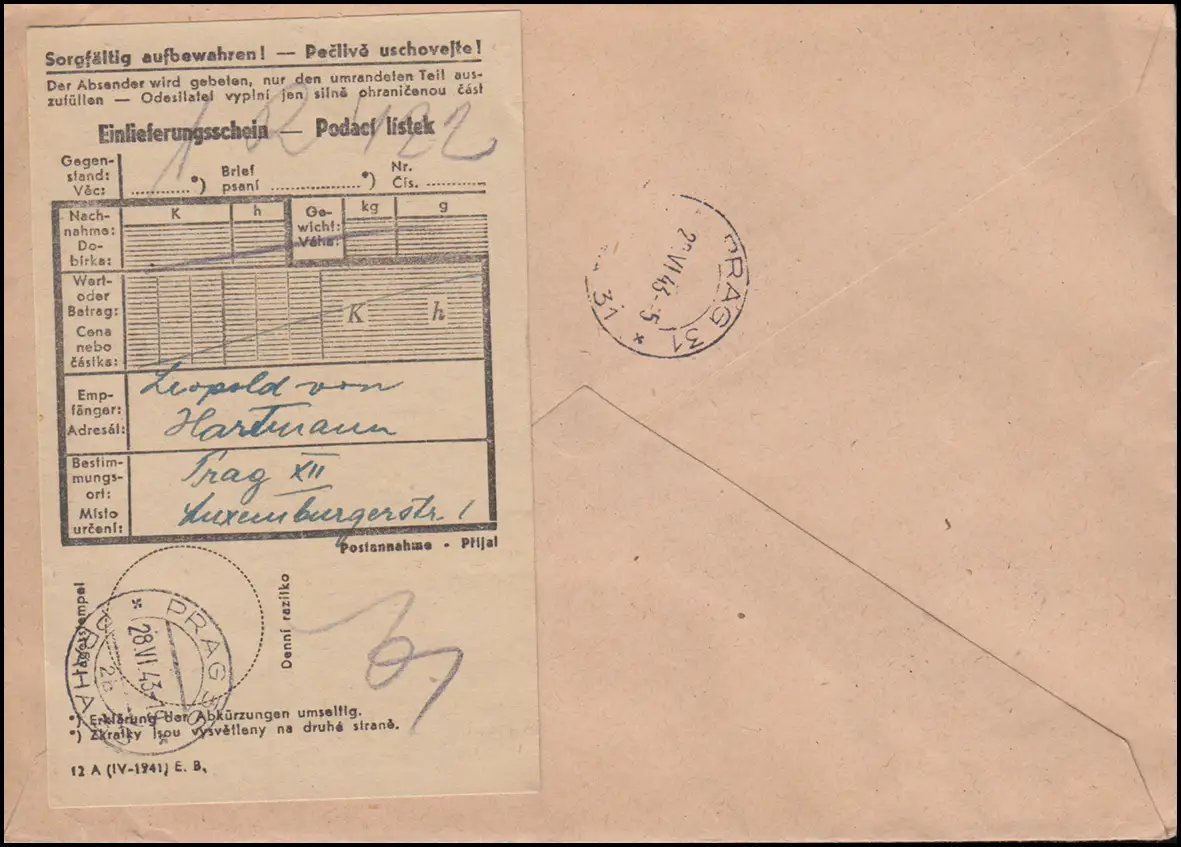 Sorgfältig aufbewahren! — Pečlivě uschovejte!
Der Absender wird gebeten, nur den umrandeten Teil aus-
zufüllen — Odesilatel vyplní jen silně ohraničenou část
Einlieferungsschein — Podací lístek
Gegen-
stand:
Věc: ............*)
Brief
psaní ..................*)
Nr.
Čís. ............
Nach-
nahme:
Do-
bírka:
K h
Ge-
wicht:
Váha:
kg g
Wert-
oder
Betrag:
Cena
nebo
částka:
K h
Emp-
fänger:
Adresát:
Leopold von
Hartmann
Bestim-
mungs-
ort:
Místo
určení:
Prag XII
Luxemburgerstr. 1
Postannahme - Přijal
Tagesstempel
Denní razítko
PRAG 35
28.VI.43
PRAHA
2b
*) Erklärung der Abkürzungen umseitig.
*) Zkratky jsou vysvětleny na druhé straně.
12 A (IV-1941) E. B.
PRAG 31
VI.43
* 31